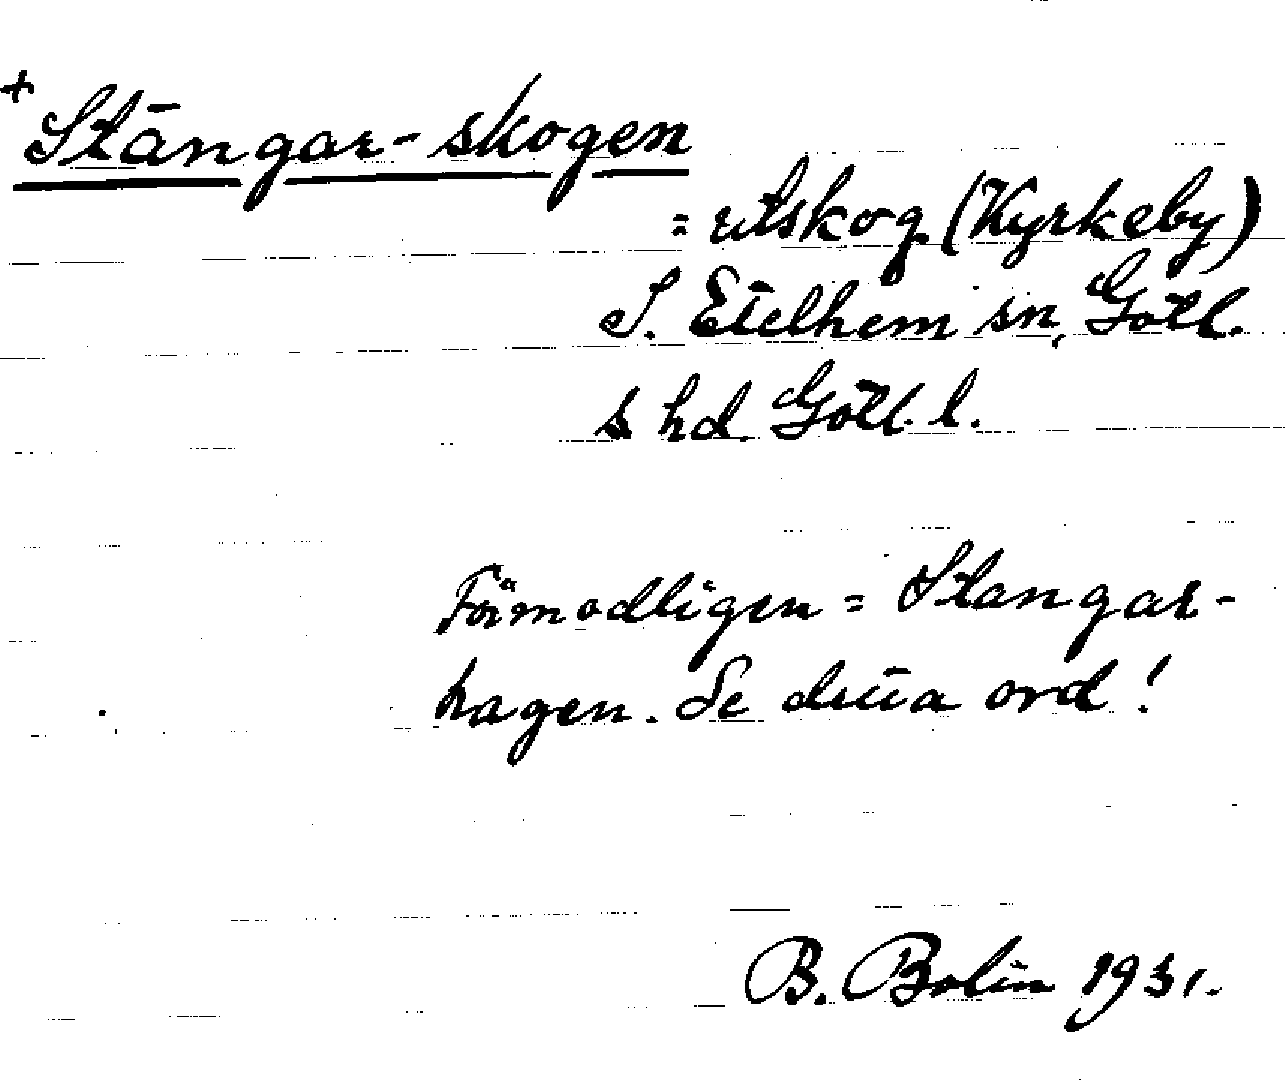 + Stangar-skogen
= utskog (Kyrkeby)
S. Etelhem sn, Gotl.
s hd. Gotl. l.
Förmodligen = Stangar-
hagen. Se detta ord!
B. Bolin 1931.